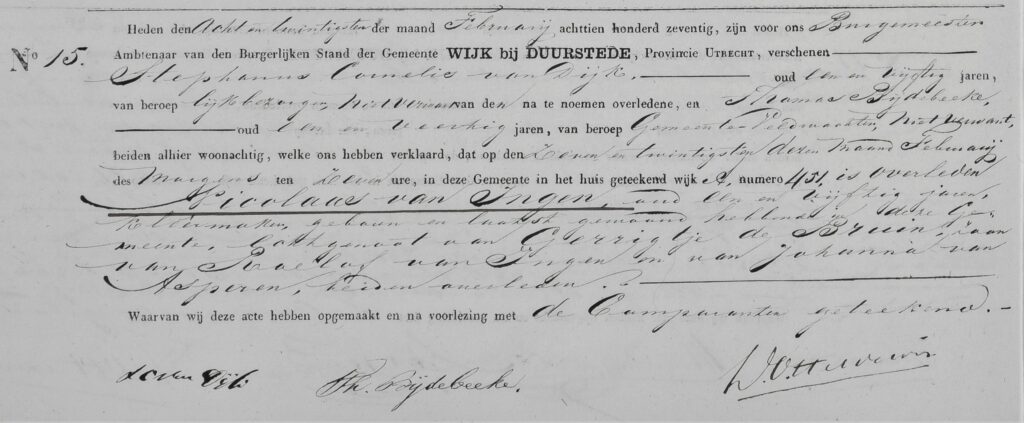 Heden den Acht en twintigsten der maand Februarij achttien honderd zeventig, zijn voor ons Burgemeester
No 15. Ambtenaar van den Burgerlijken Stand der Gemeente WIJK bij DUURSTEDE, Provincie UTRECHT, verschenen
Stephanus Cornelis van Dijk. oud een en vijftig jaren,
van beroep lijkbezorger, niet verwant van den na te noemen overledene, en Thomas Bijdebeeke,
oud een en veertig jaren, van beroep Gemeente-Veldwachter, niet verwant,
beiden alhier woonachtig, welke ons hebben verklaard, dat op den Zeven en twintigsten dezer maand Februarij
des Morgens ten Zeven ure, in deze Gemeente in het huis geteekend wijk A, numero 451, is overleden
Nicolaas van Ingen, oud een en vijftig jaren,
geboren en laatst gewoond hebbende in deze Ge-
meente, Echtgenoot van Gerrigtje de Bruin, zoon
van Roelof van Ingen en van Johanna van
Asperen, beiden overleden.
Waarvan wij deze acte hebben opgemaakt en na voorlezing met de Comparanten geteekend.
S C van Dijk
Th. Bijdebeeke.